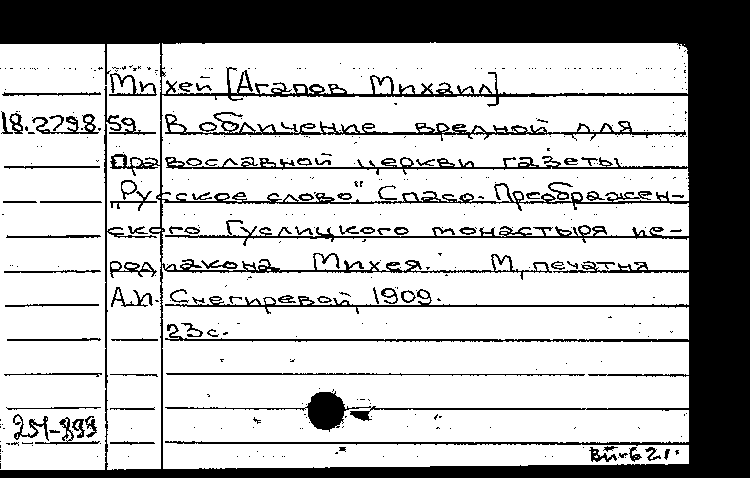 Михей [Агапов Михаил].
18.279.8.59. В обличение вредной для
православной церкви газеты
„Русское слово". Спасо-Преображен-
ского Гуслицкого монастыря ие-
родиакона Михея. М, печатня
А.И. Снегиревой, 1909.
23с.
251-899